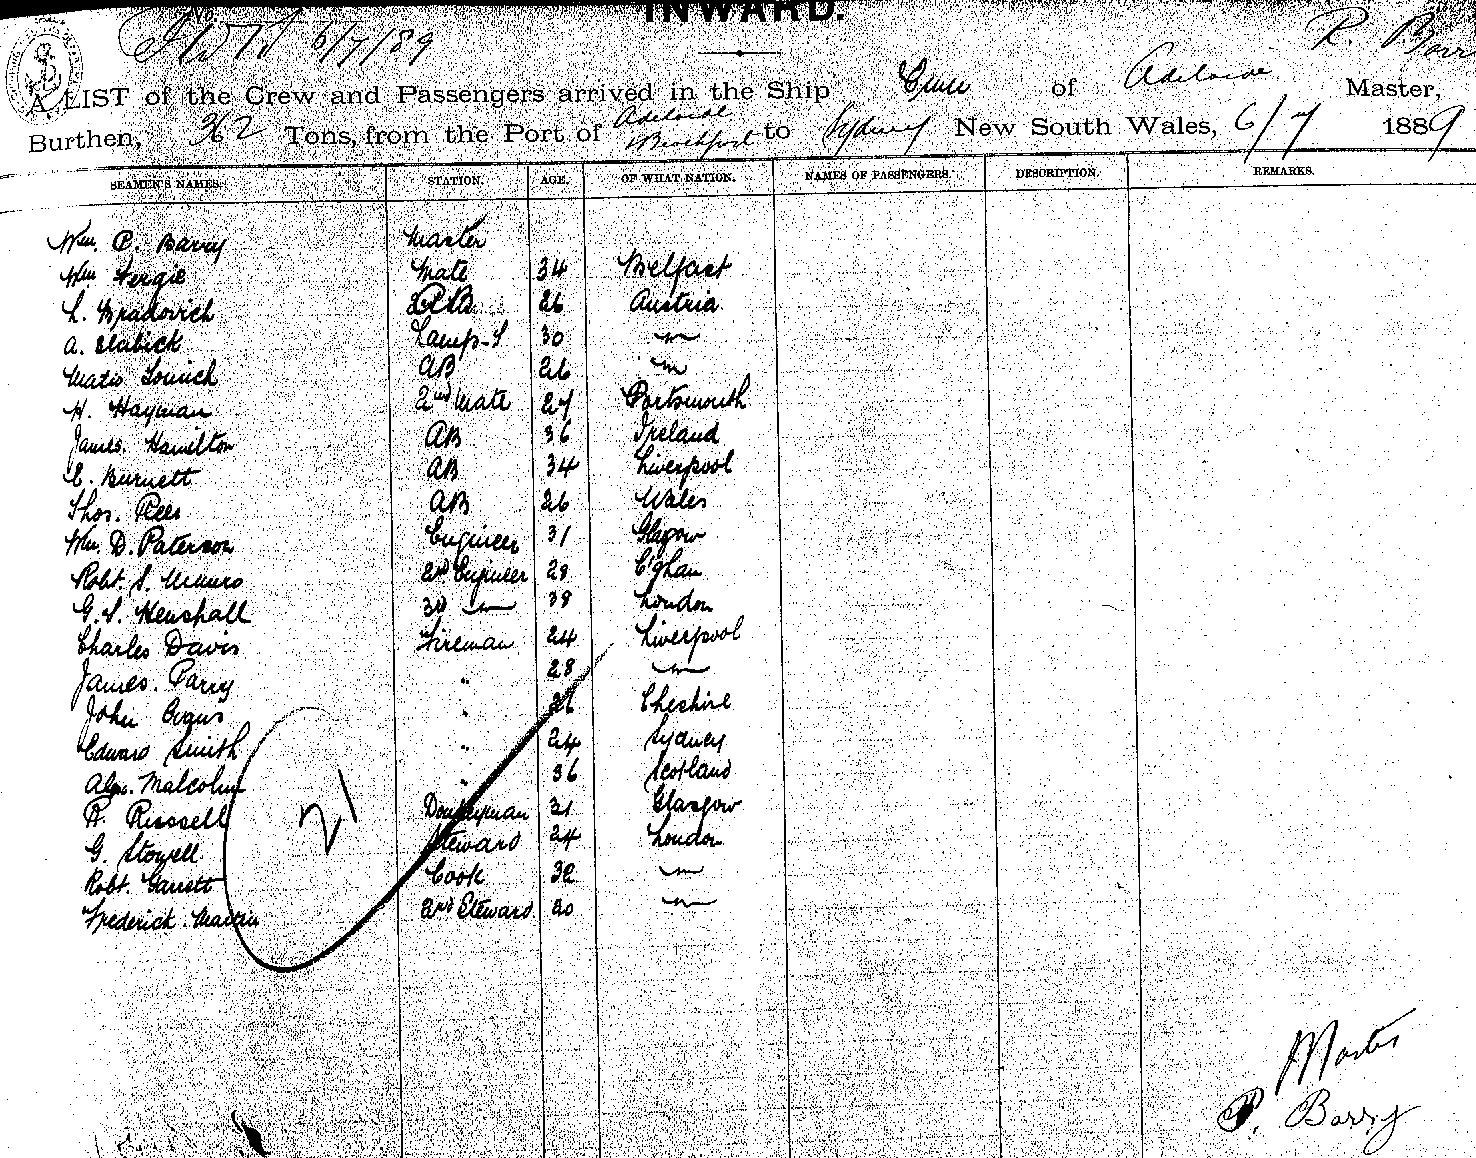 INWARD.
6/7/89
R. Barr
A LIST of the Crew and Passengers arrived in the Ship of Adelaide Master,
Burthen, 362 Tons, from the Port of Adelaide Beachport to Sydney New South Wales, 6/7 1889
SEAMEN'S NAMES. STATION. AGE. OF WHAT NATION. NAMES OF PASSENGERS. DESCRIPTION. REMARKS.
Wm. P. Barry Master
Wm Fergie Mate 34 Belfast
L. Bradovich AB 26 Austria
A. Lamp-T 30 "
Matio AB 26 "
H. Hayman 2nd Mate 27 Portsmouth
James. Hamilton AB 36 Ireland
C. Burnett AB 34 Liverpool
Thos. Rees AB 26 Wales
Wm. D. Paterson Engineer 31 Glasgow
Robt. S. Munro 2nd Engineer 28
G. S. Henshall 3rd " 38 London
Charles Davis Fireman 24 Liverpool
James. Parry " 28 "
John " 26 Cheshire
Edward Smith " 24 Sydney
Alex. Malcolm " 36 Scotland
R. Russell Donkeyman 31 Glasgow
G. Stowell Steward 24 London
Robt. Garrett Cook 32 "
Frederick. Martin 2nd Steward 20 "
21
Master
P. Barry